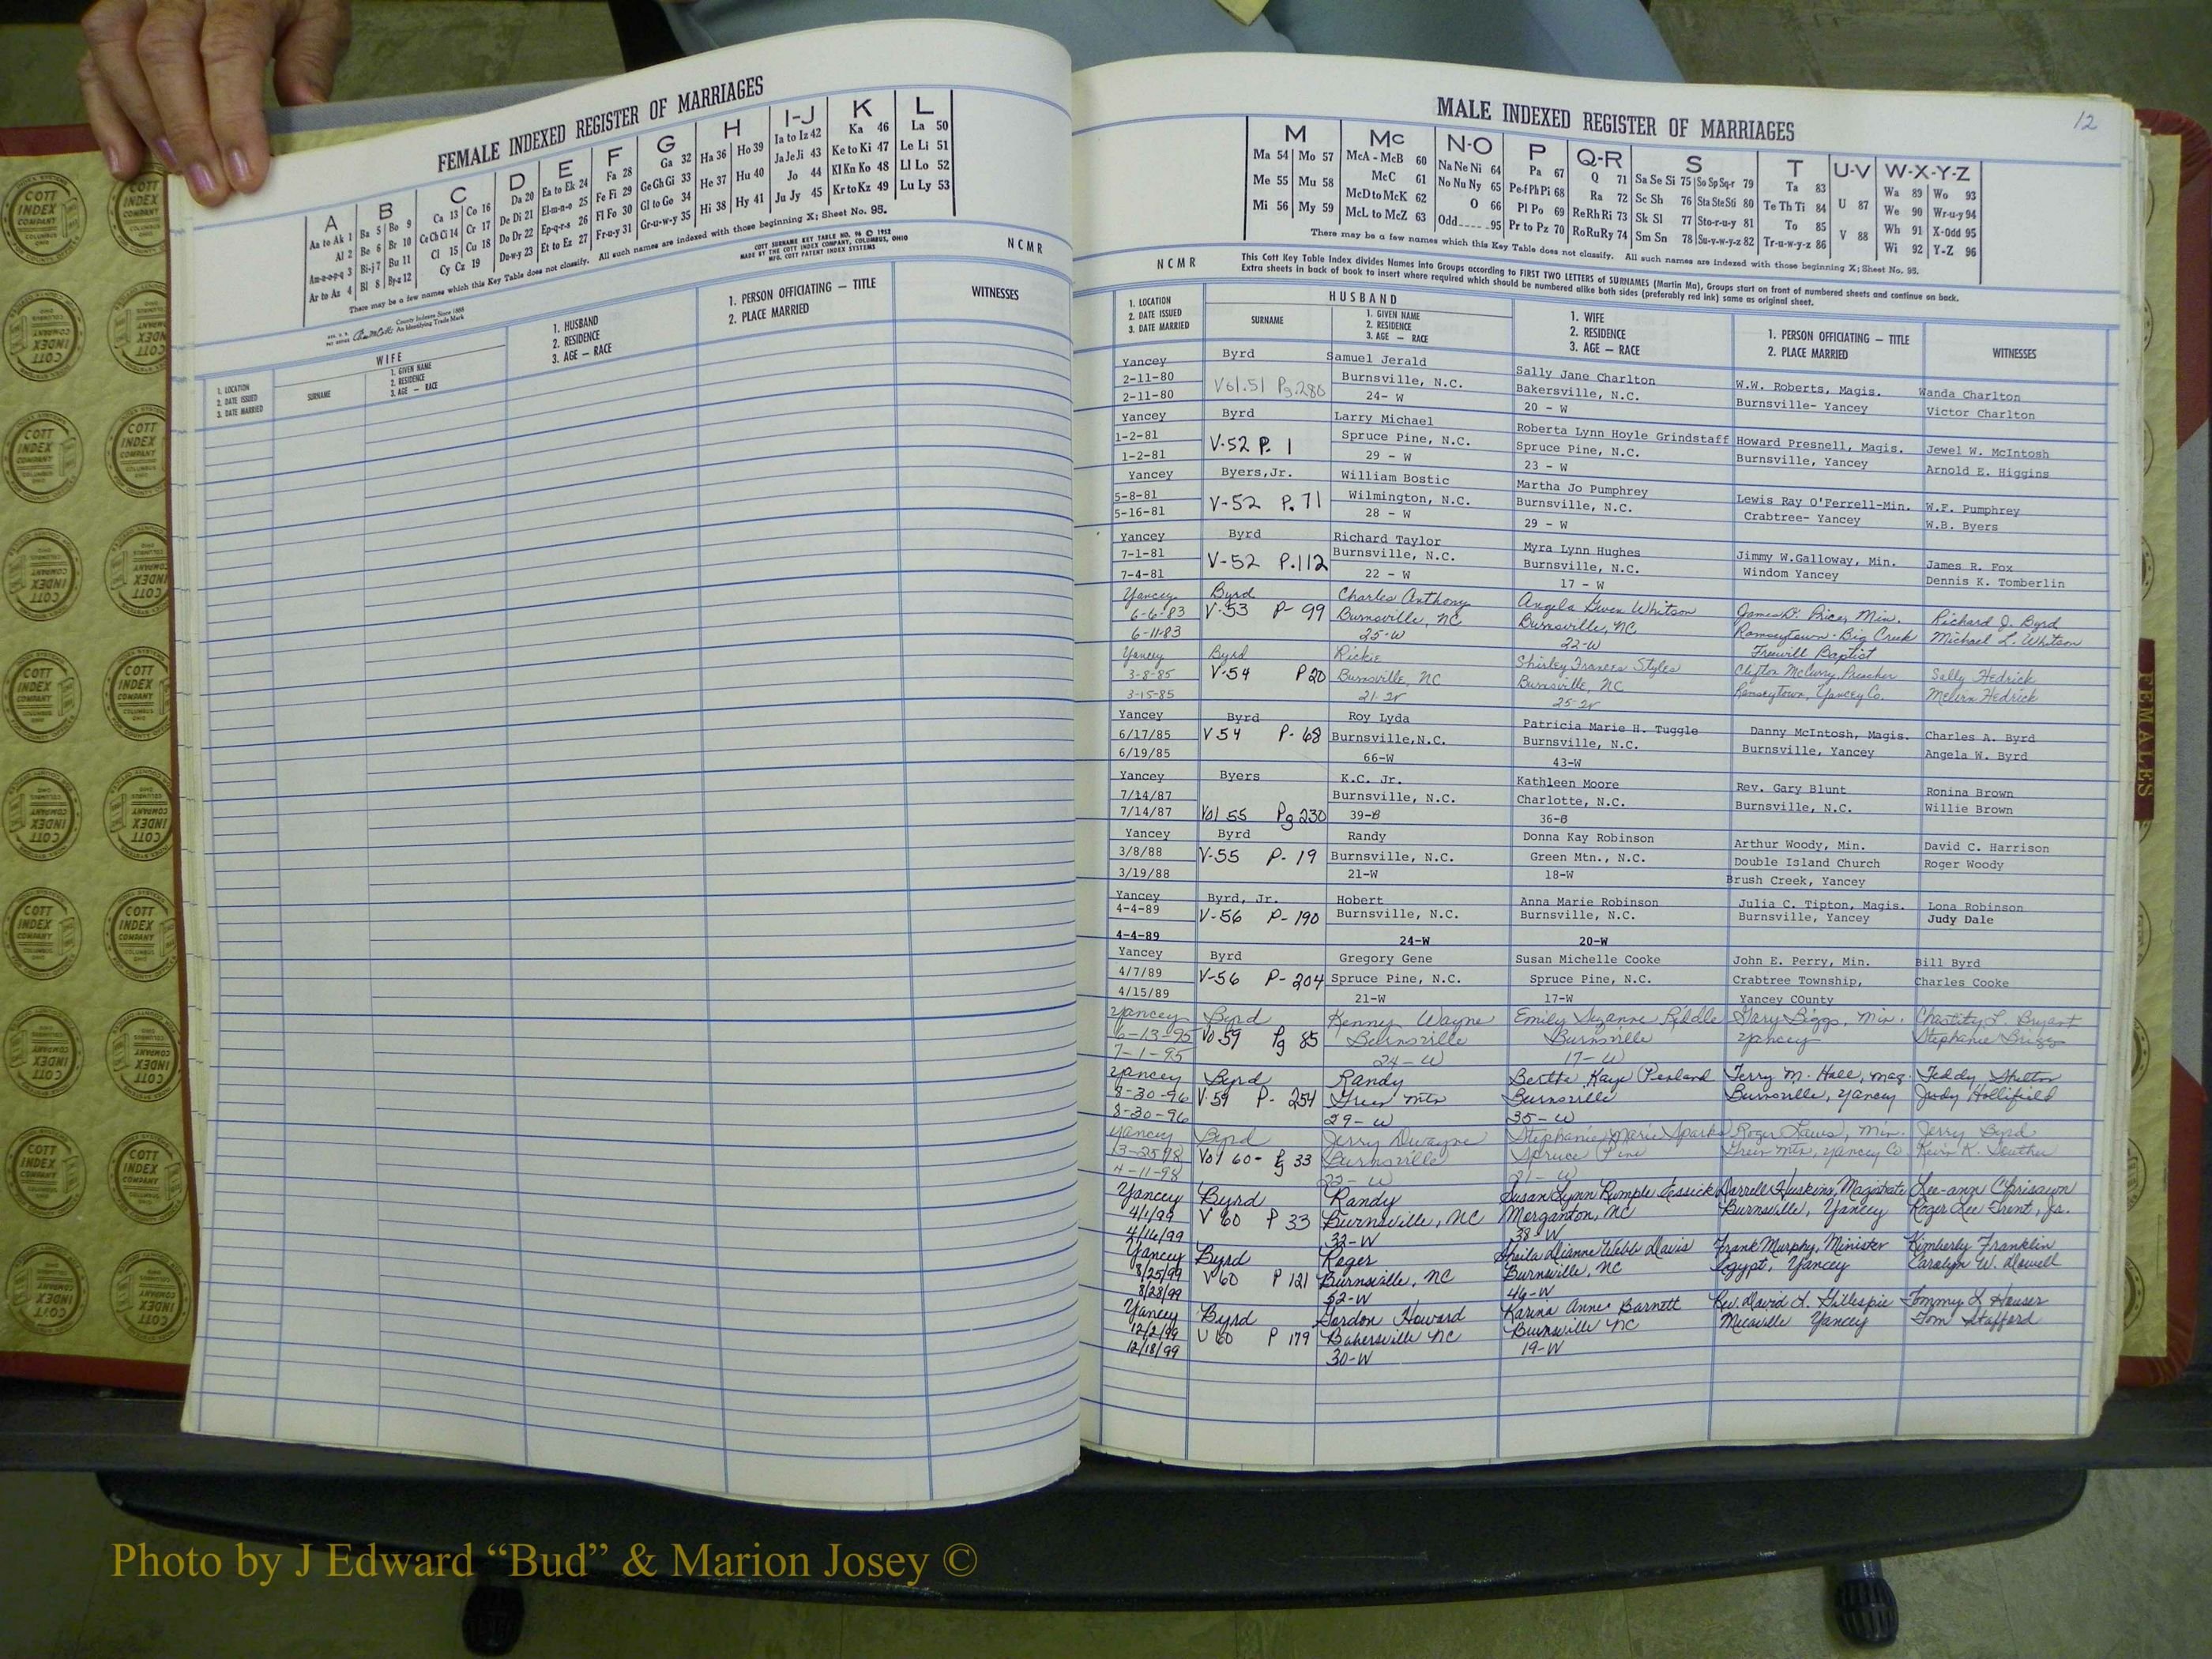 FEMALE INDEXED REGISTER OF MARRIAGES
A B C D E F G H I-J K L
Aa to Ak 1 Ba 5 Bo 9 Ca 13 Co 16 Da 20 Ea to Ek 24 Fa 28 Ga 32 Ha 36 Ho 39 Ia to Iz 42 Ka 46 La 50
Al 2 Be 6 Br 10 Ce Ch Ci 14 Cr 17 De Di 21 El-m-n-o 25 Fe Fi 29 Ge Gh Gi 33 He 37 Hu 40 Ja Je Ji 43 Ke to Ki 47 Le Li 51
Am-n-o-p-q 3 Bi-j 7 Bu 11 Cl 15 Cu 18 Do Dr 22 Ep-q-r-s 26 Fl Fo 30 Gl to Go 34 Hi 38 Hy 41 Jo 44 Kl Kn Ko 48 Ll Lo 52
Ar to Az 4 Bl 8 By-z 12 Cy Cz 19 Du-w-y 23 Et to Ez 27 Fr-u-y 31 Gr-u-w-y 35 Ju Jy 45 Kr to Kz 49 Lu Ly 53
There may be a few names which this Key Table does not classify. All such names are indexed with those beginning X; Sheet No. 95.
COTT SURNAME KEY TABLE NO. 96 © 1952
MADE BY THE COTT INDEX COMPANY, COLUMBUS, OHIO
MFG. COTT PATENT INDEX SYSTEMS
NCMR
County Indexes Since 1888
An Identifying Trade Mark
1. LOCATION
2. DATE ISSUED
3. DATE MARRIED
WIFE
SURNAME
1. GIVEN NAME
2. RESIDENCE
3. AGE — RACE
1. HUSBAND
2. RESIDENCE
3. AGE — RACE
1. PERSON OFFICIATING — TITLE
2. PLACE MARRIED
WITNESSES
12
MALE INDEXED REGISTER OF MARRIAGES
M Mc N-O P Q-R S T U-V W-X-Y-Z
Ma 54 Mo 57 McA - McB 60 Na Ne Ni 64 Pa 67 Q 71 Sa Se Si 75 So Sp Sq-r 79 Ta 83 U 87 Wa 89 Wo 93
Me 55 Mu 58 McC 61 No Nu Ny 65 Pe-f Ph Pi 68 Ra 72 Sc Sh 76 Sta Ste Sti 80 Te Th Ti 84 We 90 Wr-u-y 94
Mi 56 My 59 McD to McK 62 O 66 Pl Po 69 Re Rh Ri 73 Sk Sl 77 Sto-r-u-y 81 To 85 V 88 Wh 91 X-Odd 95
McL to McZ 63 Odd 95 Pr to Pz 70 Ro Ru Ry 74 Sm Sn 78 Su-v-w-y-z 82 Tr-u-w-y-z 86 Wi 92 Y-Z 96
There may be a few names which this Key Table does not classify. All such names are indexed with those beginning X; Sheet No. 95.
NCMR
This Cott Key Table Index divides Names into Groups according to FIRST TWO LETTERS of SURNAMES (Martin Ma), Groups start on front of numbered sheets and continue on back.
Extra sheets in back of book to insert where required which should be numbered alike both sides (preferably red ink) same as original sheet.
1. LOCATION
2. DATE ISSUED
3. DATE MARRIED
HUSBAND
SURNAME
1. GIVEN NAME
2. RESIDENCE
3. AGE — RACE
1. WIFE
2. RESIDENCE
3. AGE — RACE
1. PERSON OFFICIATING — TITLE
2. PLACE MARRIED
WITNESSES
Yancey Byrd Samuel Jerald Sally Jane Charlton W.W. Roberts, Magis. Wanda Charlton
2-11-80 Vol.51 Pg.280 Burnsville, N.C. Bakersville, N.C. Burnsville- Yancey Victor Charlton
2-11-80 24- W 20 - W
Yancey Byrd Larry Michael Roberta Lynn Hoyle Grindstaff Howard Presnell, Magis. Jewel W. McIntosh
1-2-81 V-52 P. 1 Spruce Pine, N.C. Spruce Pine, N.C. Burnsville, Yancey Arnold E. Higgins
1-2-81 29 - W 23 - W
Yancey Byers,Jr. William Bostic Martha Jo Pumphrey Lewis Ray O'Ferrell-Min. W.F. Pumphrey
5-8-81 V-52 P. 71 Wilmington, N.C. Burnsville, N.C. Crabtree- Yancey W.B. Byers
5-16-81 28 - W 29 - W
Yancey Byrd Richard Taylor Myra Lynn Hughes Jimmy W.Galloway, Min. James R. Fox
7-1-81 V-52 P.112 Burnsville, N.C. Burnsville, N.C. Windom Yancey Dennis K. Tomberlin
7-4-81 22 - W 17 - W
Yancey Byrd Charles Anthony Angela Gwen Whitson James D. Price, Min. Richard J. Byrd
6-6-83 V-53 P- 99 Burnsville, NC Burnsville, NC Ramseytown-Big Creek Michael L. Whitson
6-11-83 25-W 22-W Freewill Baptist
Yancey Byrd Rickie Shirley Frances Styles Clifton McCurry, Preacher Sally Hedrick
3-8-85 V-54 P 20 Burnsville, NC Burnsville, NC Ramseytown, Yancey Co. Melvin Hedrick
3-15-85 21-W 25-W
Yancey Byrd Roy Lyda Patricia Marie H. Tuggle Danny McIntosh, Magis. Charles A. Byrd
6/17/85 V 54 P- 68 Burnsville,N.C. Burnsville, N.C. Burnsville, Yancey Angela W. Byrd
6/19/85 66-W 43-W
Yancey Byers K.C. Jr. Kathleen Moore Rev. Gary Blunt Ronina Brown
7/14/87 Burnsville, N.C. Charlotte, N.C. Burnsville, N.C. Willie Brown
7/14/87 Vol 55 Pg 230 39-B 36-B
Yancey Byrd Randy Donna Kay Robinson Arthur Woody, Min. David C. Harrison
3/8/88 V-55 P- 19 Burnsville, N.C. Green Mtn., N.C. Double Island Church Roger Woody
3/19/88 21-W 18-W Brush Creek, Yancey
Yancey Byrd, Jr. Hobert Anna Marie Robinson Julia C. Tipton, Magis. Lona Robinson
4-4-89 V-56 P- 190 Burnsville, N.C. Burnsville, N.C. Burnsville, Yancey Judy Dale
4-4-89 24-W 20-W
Yancey Byrd Gregory Gene Susan Michelle Cooke John E. Perry, Min. Bill Byrd
4/7/89 V-56 P- 204 Spruce Pine, N.C. Spruce Pine, N.C. Crabtree Township, Charles Cooke
4/15/89 21-W 17-W Yancey COunty
Yancey Byrd Kenny Wayne Emily Suzanne Riddle Gary Biggs, Min. Chastity L. Bryant
6-13-95 Vo 59 Pg 85 Burnsville Burnsville Yancey Stephanie Briggs
7-1-95 24-W 17-W
Yancey Byrd Randy Bertha Kaye Penland Terry M. Hall, Mag. Teddy Shelton
8-30-96 V-59 P- 254 Green Mtn Burnsville Burnsville, Yancey Judy Hollifield
8-30-96 29-W 35-W
Yancey Byrd Jerry Dwayne Stephanie Marie Sparks Roger Laws, Min. Jerry Byrd
Vol 60- Pg 33 Burnsville Spruce Pine Green Mtn, Yancey Co Kevin K. Souther
4-11-98 22-W 21-W
Yancey Byrd Randy Susan Lynn Rumple Essick Darrell Huskins, Magistrate Lee-ann Chrisawn
4/1/99 V 60 P 33 Burnsville, NC Morganton, NC Burnsville, Yancey Roger Lee Trent, Jr.
4/16/99 32-W 38-W
Yancey Byrd Roger Sheila Dianne Webb Davis Frank Murphy, Minister Kimberly Franklin
8/25/99 V 60 P 121 Burnsville, NC Burnsville, NC Egypt, Yancey Carolyn W. Dowell
8/28/99 52-W 46-W
Yancey Byrd Gordon Howard Karina Anne Barnett Rev. David L. Gillespie Tommy L Houser
12/2/99 V 60 P 179 Bakersville NC Burnsville NC Micaville Yancey Tom Stafford
12/18/99 30-W 19-W
FEMALES
Photo by J Edward “Bud” & Marion Josey ©